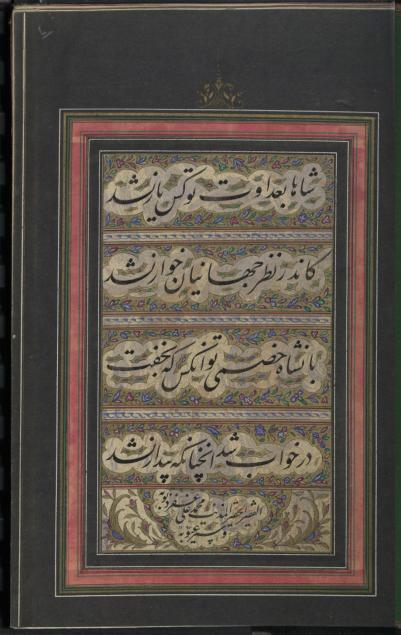 شاها بعداوت تو کس یار نشد
کاندر نظر جهانیان خوار نشد
با نشاه خصمی تو آنکس که بخفت
در خواب شد آنچنانکه بیدار نشد
الفقیر الحقیر المذنب